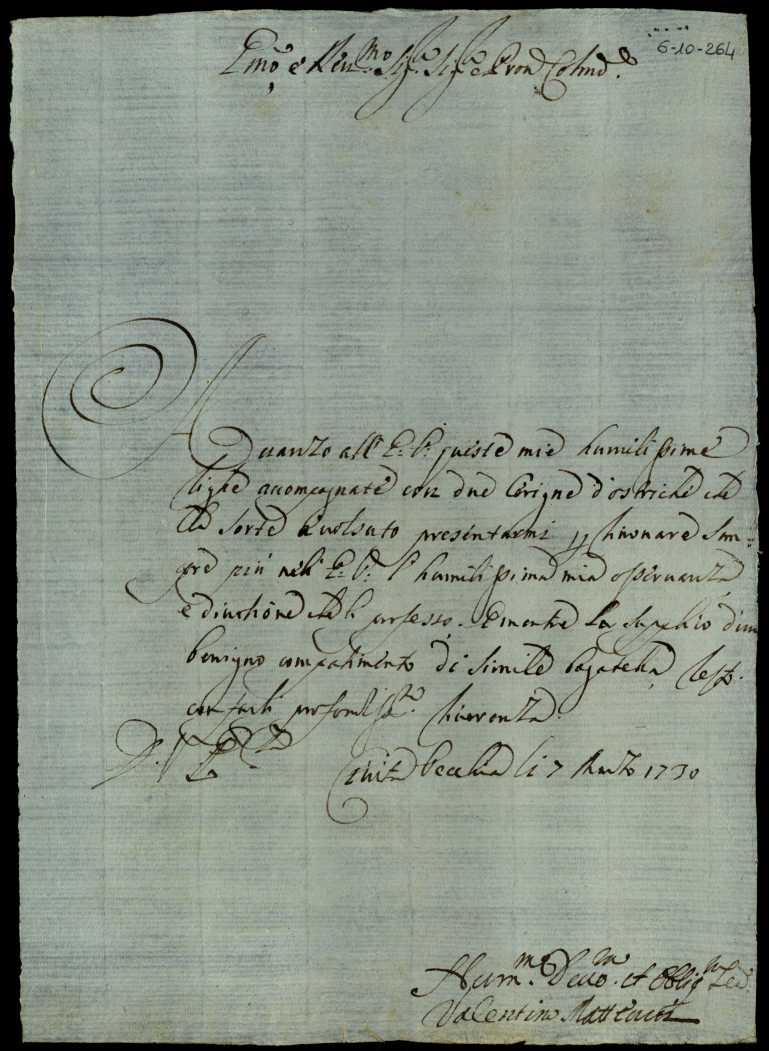 6-10-264
Emo e Reu.mo Sig.r Sig.r e Pron Colmo
Auanzo all' E: V: queste mie humilissime
righe acompagnate con due d'ostriche che
la sorte à volsuto presentarmi p
pre più nell' E: V: l' humilissima mia osseruanza
e diuotione che li professo. E mentre La suplico d'un
benigno compatimento di simile bagatella, resto
con farli profondis.ma riuerenza.
D. V. E.
Ciuita Vecchia li 7 Marzo 1730
Hum.mo Deuo.mo et Oblig.mo Ser.
Valentino Matteucci